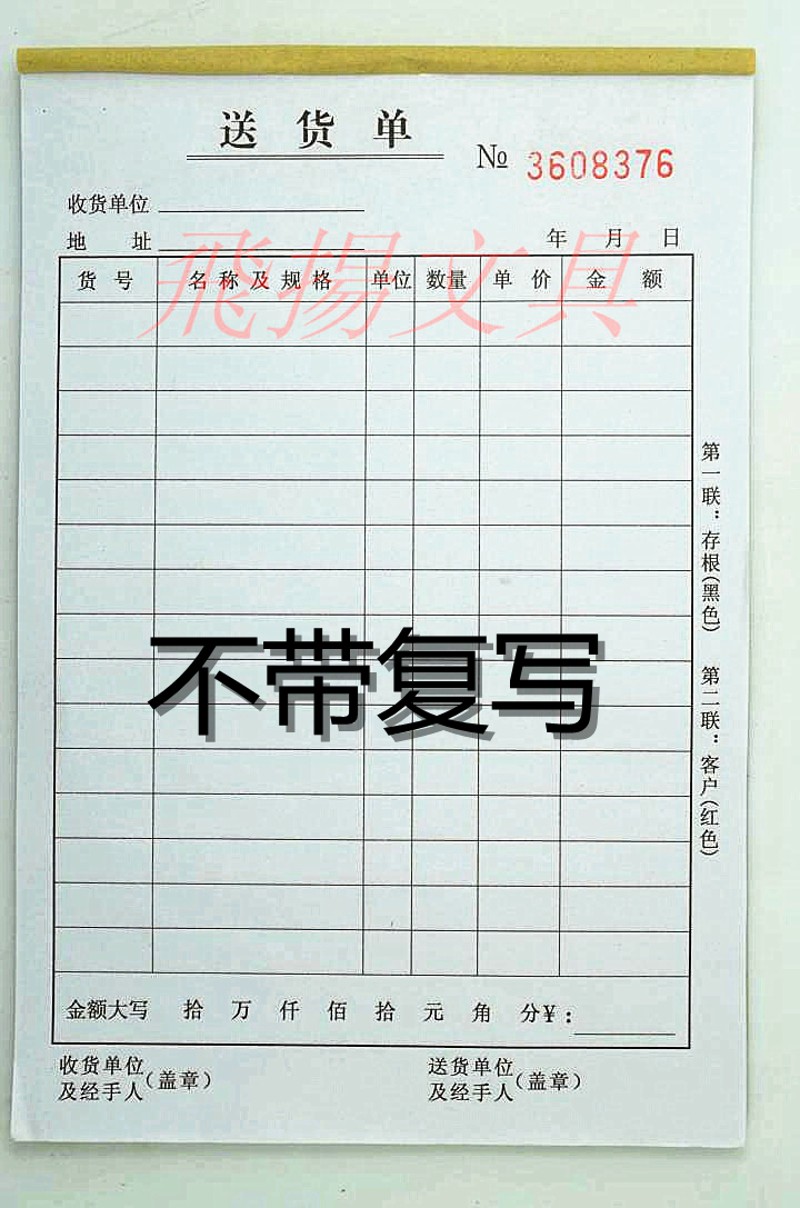 送货单
№ 3608376
收货单位
地 址 年 月 日
飛揚文具
货号 名称及规格 单位 数量 单价 金额
第一联：存根(黑色) 第二联：客户(红色)
不带复写
金额大写 拾 万 仟 佰 拾 元 角 分¥：
收货单位及经手人(盖章)
送货单位及经手人(盖章)